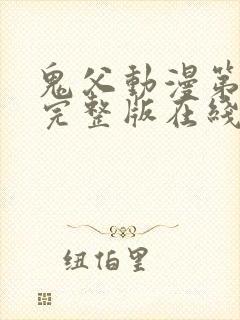 鬼父動漫第
完整版在綫
纽伯里